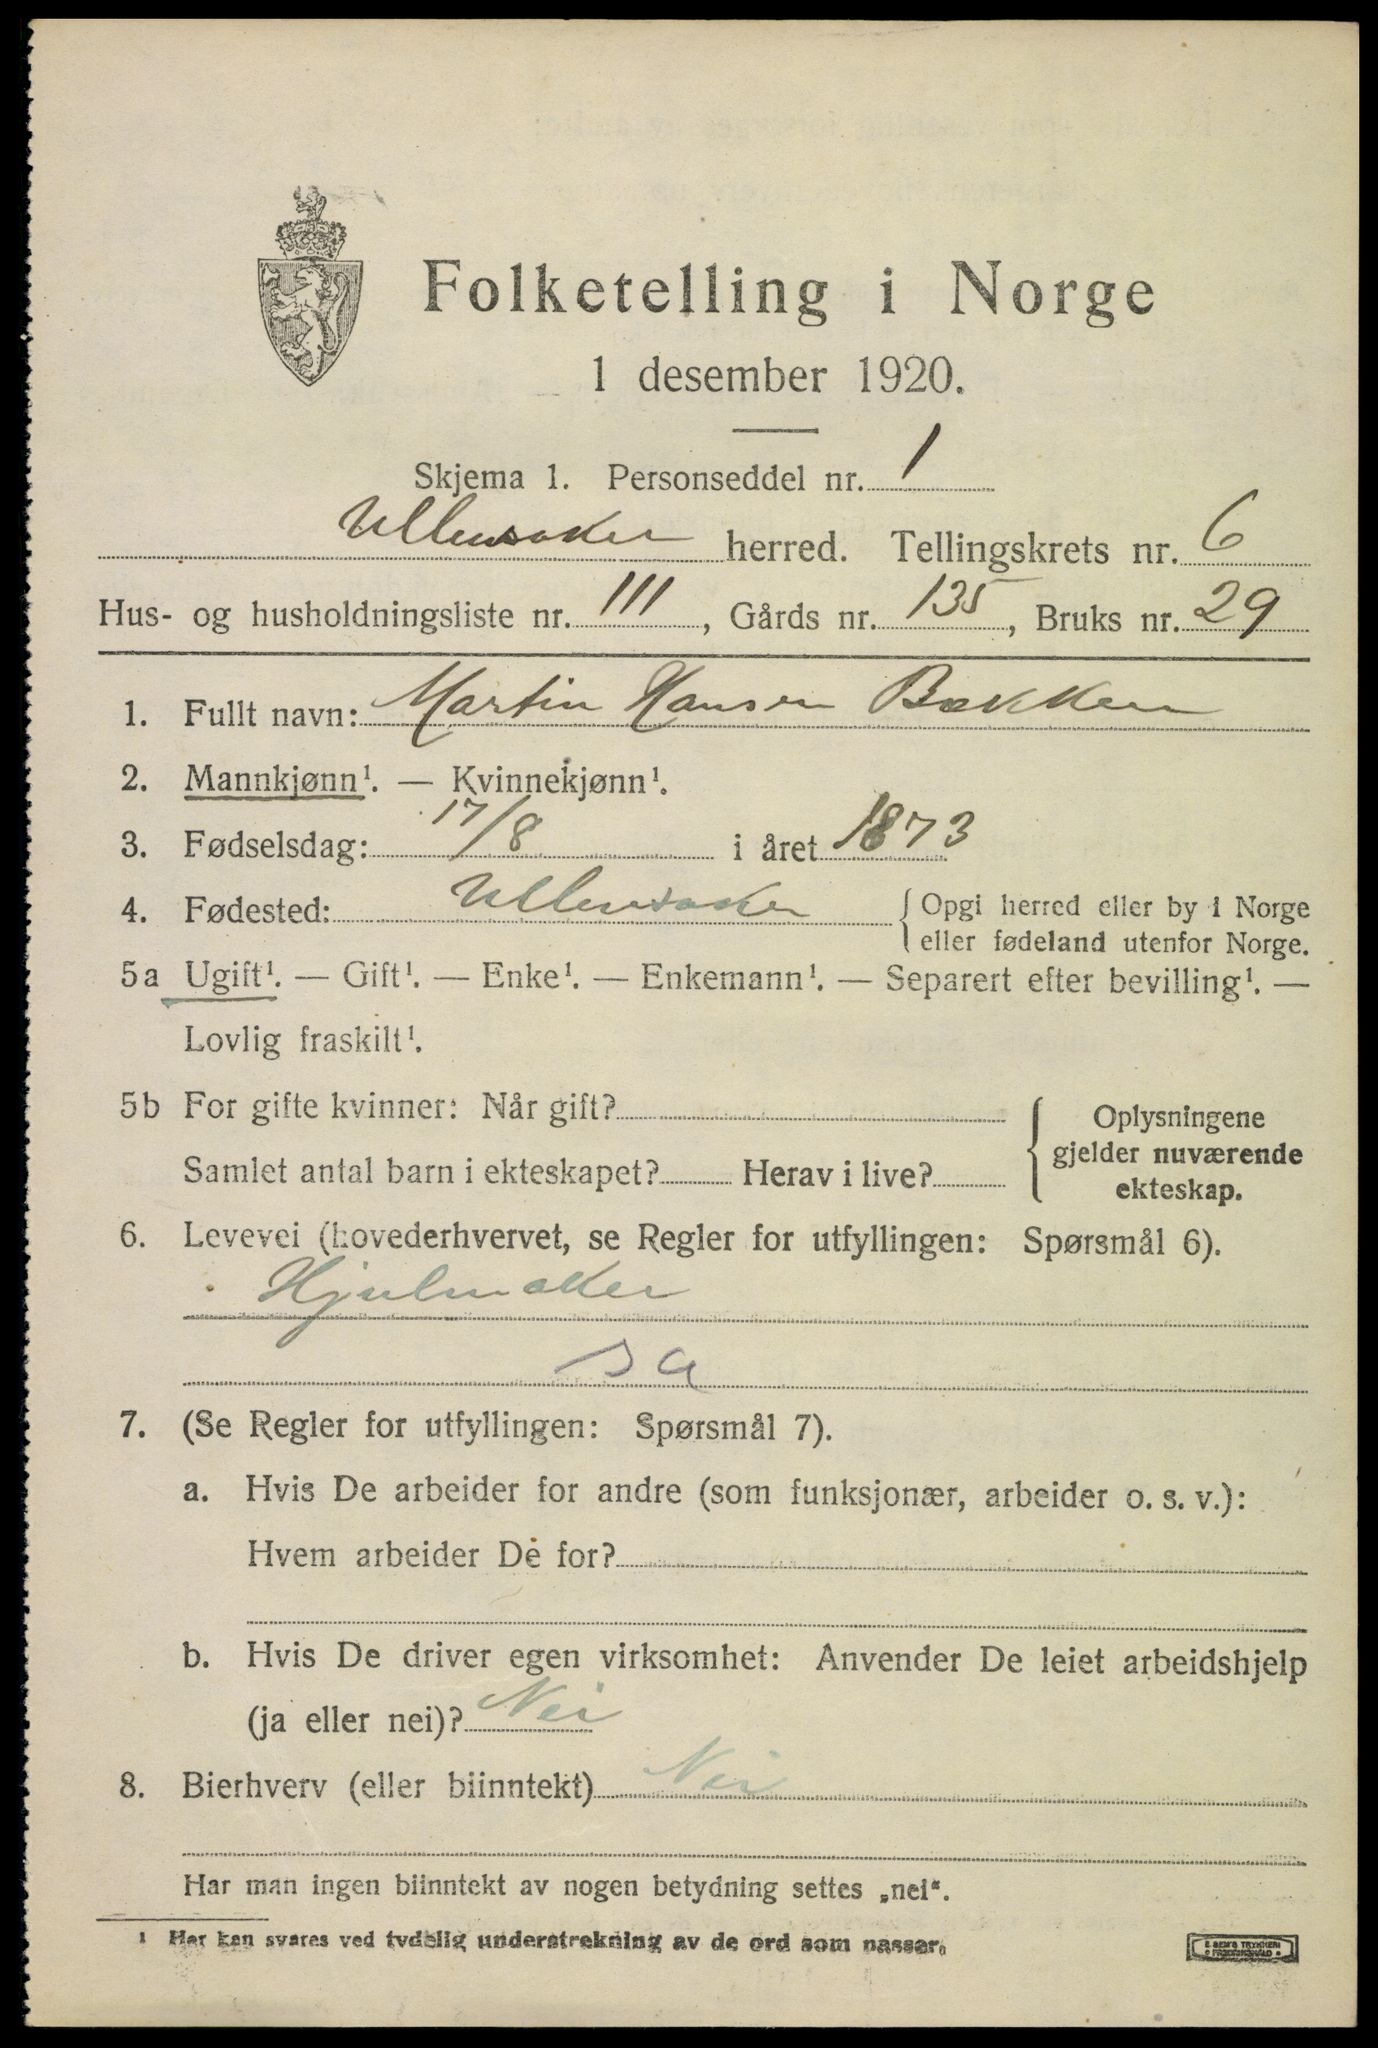 Folketelling i Norge
1 desember 1920.
Skjema 1. Personseddel nr. 1
Ullensaker herred. Tellingskrets nr. 6
Hus- og husholdningsliste nr. 111, Gårds nr. 135, Bruks nr. 29
1. Fullt navn: Martin Hansen Bakken
2. Mannkjønn¹. — Kvinnekjønn¹.
3. Fødselsdag: 17/8 i året 1873
4. Fødested: Ullensaker { Opgi herred eller by i Norge
eller fødeland utenfor Norge.
5a Ugift¹. — Gift¹. — Enke¹. — Enkemann¹. — Separert efter bevilling¹. —
Lovlig fraskilt¹.
5b For gifte kvinner: Når gift?
Samlet antal barn i ekteskapet? Herav i live?
Oplysningene
gjelder nuværende
ekteskap.
6. Levevei (hovederhvervet, se Regler for utfyllingen: Spørsmål 6).
Hjulmaker
sa
7. (Se Regler for utfyllingen: Spørsmål 7).
a. Hvis De arbeider for andre (som funksjonær, arbeider o. s. v.):
Hvem arbeider De for?
b. Hvis De driver egen virksomhet: Anvender De leiet arbeidshjelp
(ja eller nei)? Nei
8. Bierhverv (eller biinntekt) Nei
Har man ingen biinntekt av nogen betydning settes „nei“.
¹ Her kan svares ved tydelig understrekning av de ord som passer.